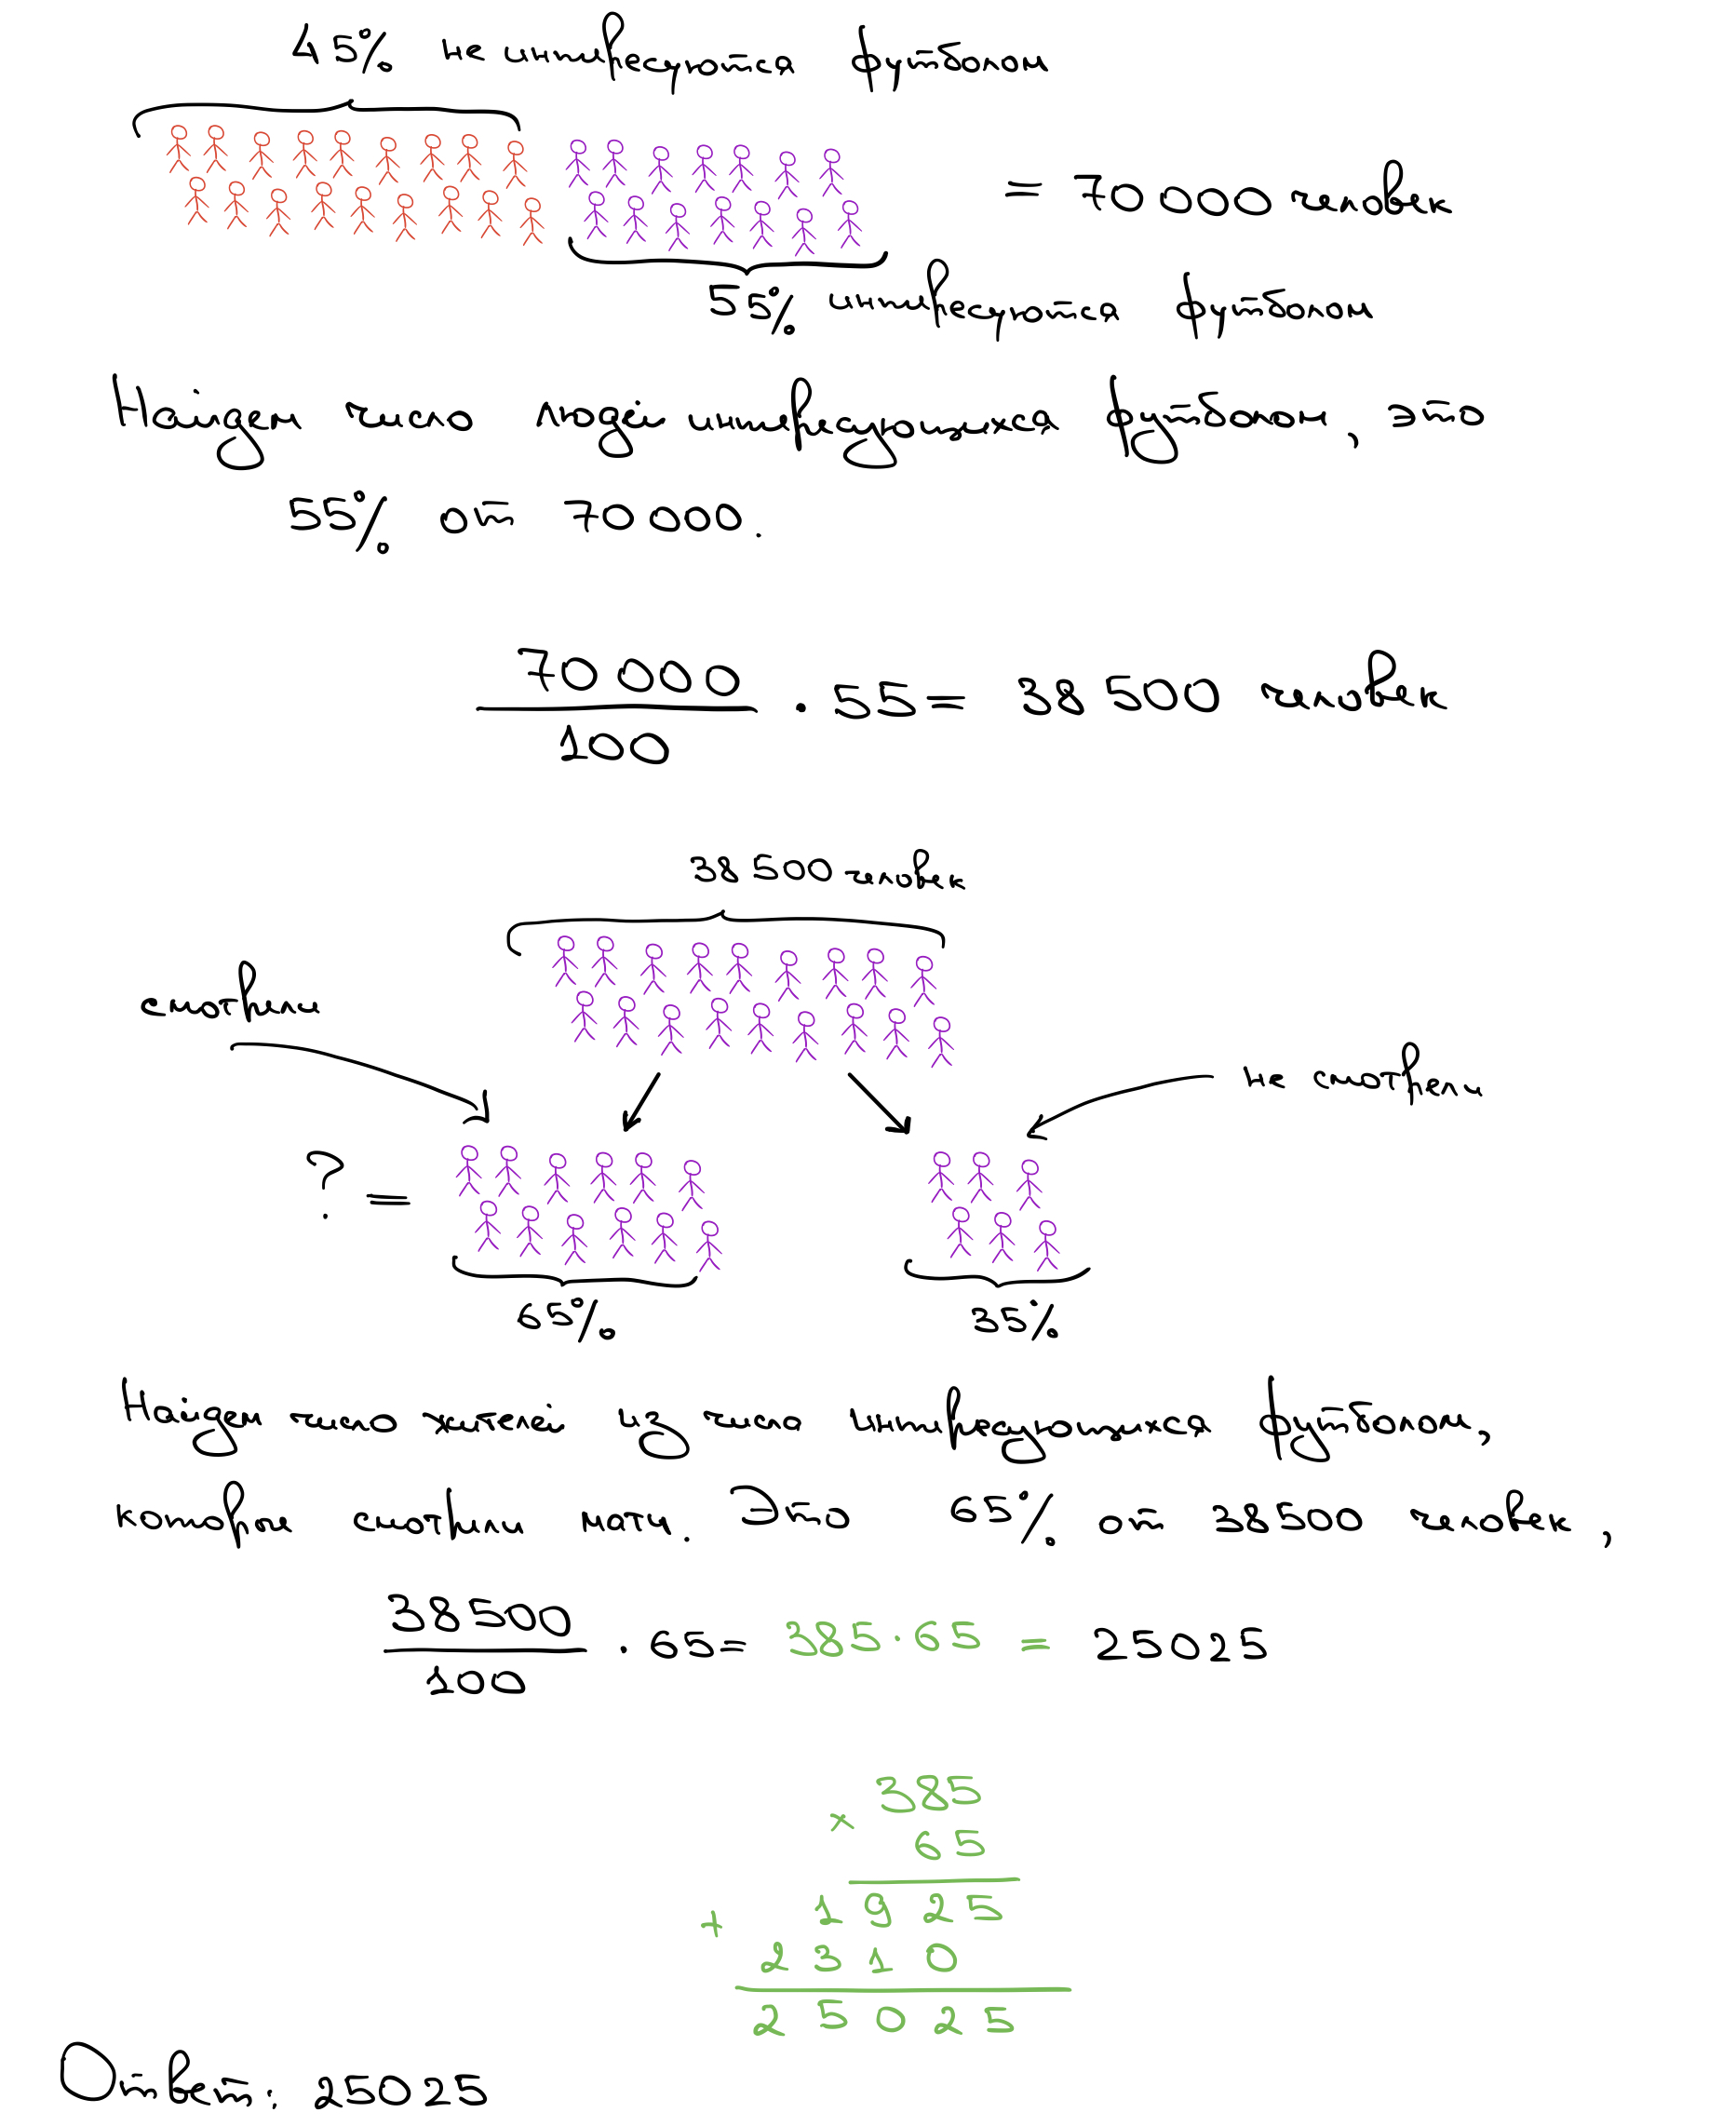 45% не интересуются футболом
= 70 000 человек
55% интересуются футболом
Найдем число людей интересующихся футболом, это
55% от 70 000.
70 000
100
· 55 = 38 500 человек
38 500 человек
смотрели
не смотрели
? =
65%
35%
Найдем число жителей из числа интересующихся футболом,
которые смотрели матч. Это 65% от 38500 человек,
38500
100
· 65 = 385 · 65 = 25025
× 385
65
+ 1925
2310
25025
Ответ: 25025